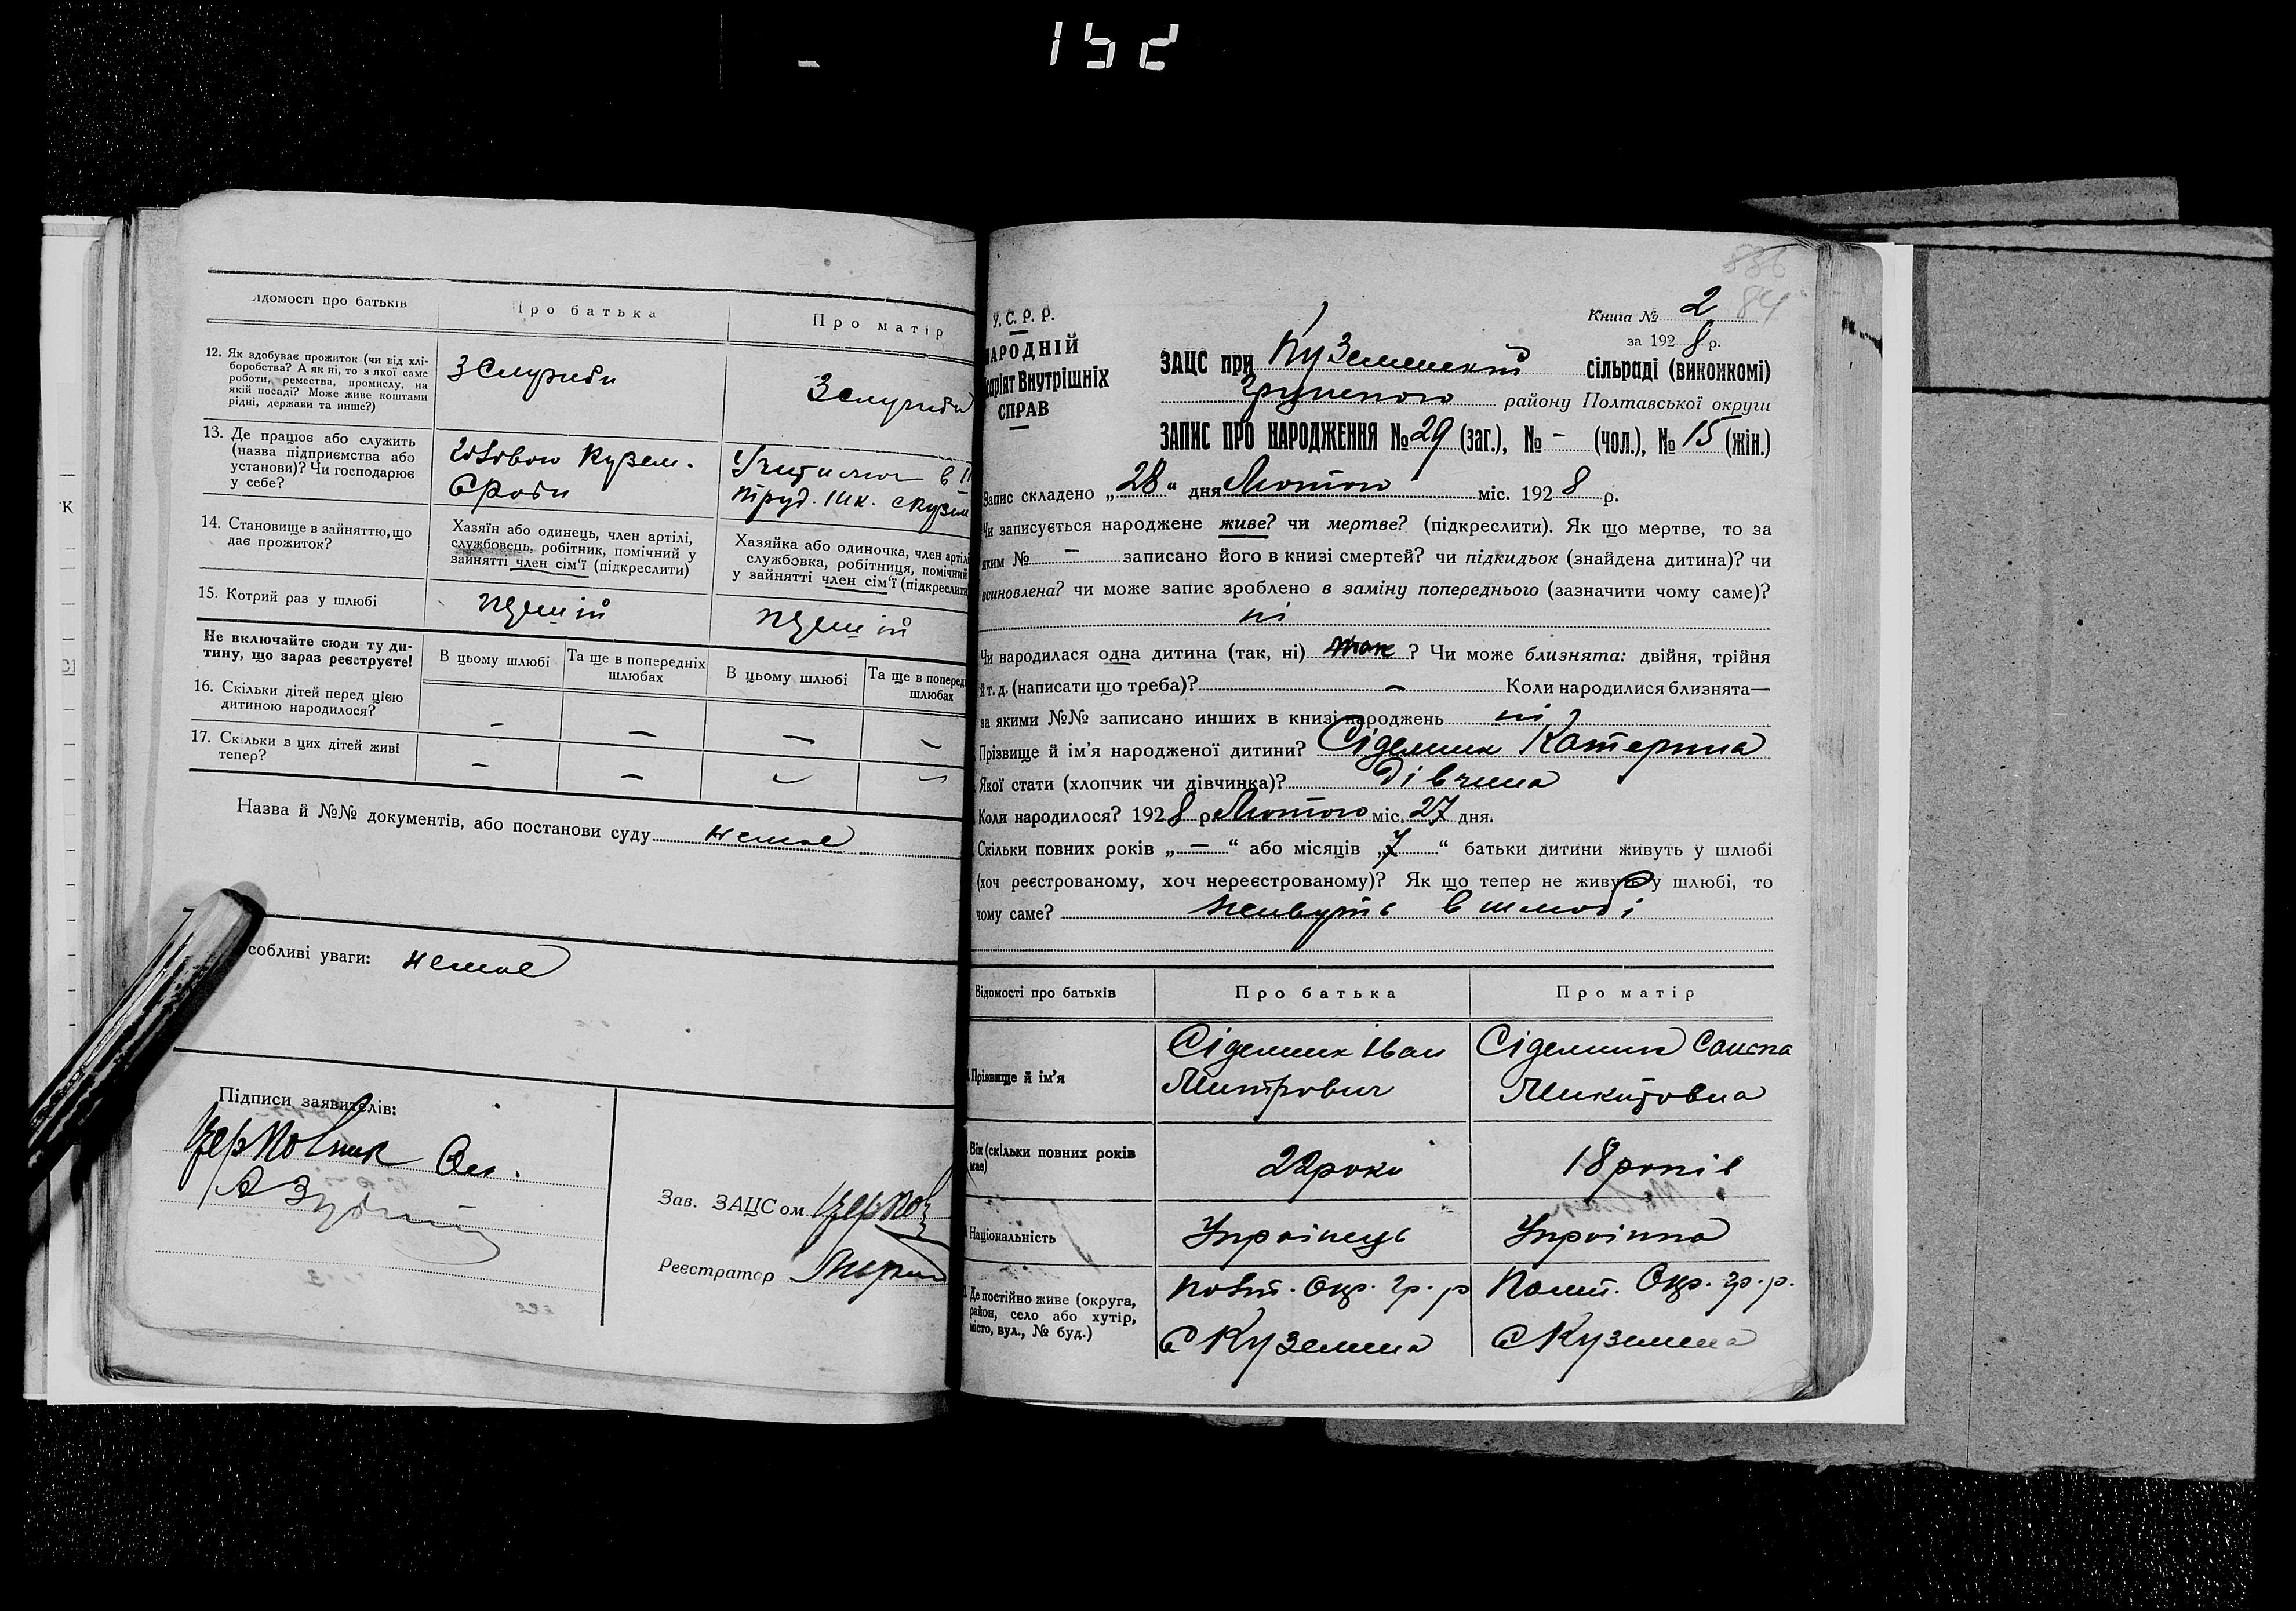 152
Відомості про батьків
Про батька
Про матір
12. Як здобуває прожиток (чи від хлі-
боробства? А як ні, то з якої саме
роботи, ремества, промислу, на
якій посаді? Може живе коштами
рідні, держави та инше?)
З служби
З служби
13. Де працює або служить
(назва підприємства або
установи)? Чи господарює
у себе?
Головою Кузем.
Учителює в
труд. шк. с Кузем
14. Становище в зайняттю, що
дає прожиток?
Хазяїн або одинець, член артілі,
службовець, робітник, помічний у
зайнятті член сім'ї (підкреслити)
Хазяйка або одиночка, член артілі
службовка, робітниця, помічний
у зайнятті член сім'ї (підкреслити
15. Котрий раз у шлюбі
перший
перший
Не включайте сюди ту ди-
тину, що зараз реєструєте!
В цьому шлюбі
Та ще в попередніх
шлюбах
В цьому шлюбі
Та ще в поперед
шлюбах
16. Скільки дітей перед цією
дитиною народилося?
– – – –
17. Скільки з цих дітей живі
тепер?
– – – –
Назва й №№ документів, або постанови суду немає
собливі уваги: немає
Підписи заявителів:
Церковник Ол.
Зав. ЗАЦСом Церков
Реєстратор
886
84
У. С. Р. Р.
НАРОДНІЙ
сарі́ят Внутрішніх
СПРАВ
Книга № 2
за 1928 р.
ЗАЦС при Куземенській сільраді (виконкомі)
Грунського району Полтавської округи
ЗАПИС ПРО НАРОДЖЕННЯ № 29 (заг.), № – (чол.), № 15 (жін.)
Запис складено „28“ дня Лютого міс. 1928 р.
Чи записується народжене живе? чи мертве? (підкреслити). Як що мертве, то за
яким № – записано його в книзі смертей? чи підкидьок (знайдена дитина)? чи
всиновлена? чи може запис зроблено в заміну попереднього (зазначити чому саме)?
ні
Чи народилася одна дитина (так, ні) так ? Чи може близнята: двійня, трійня
й т. д. (написати що треба)? – Коли народилися близнята—
за якими №№ записано инших в книзі народжень ні
Прізвище й ім'я народженої дитини? Сідельник Катерина
Якої стати (хлопчик чи дівчинка)? Дівчина
Коли народилося? 1928 р Лютого міс. 27 дня.
Скільки повних років „–“ або місяців „7“ батьки дитини живуть у шлюбі
(хоч реєстрованому, хоч нереєстрованому)? Як що тепер не живуть у шлюбі, то
чому саме? живуть в шлюбі
Відомості про батьків
Про батька
Про матір
Прізвище й ім'я
Сідельник Іван
Митрович
Сідельник
Микитовна
Вік (скільки повних років
має)
22 роки
18 років
Національність
Украінець
Украінка
Де постійно живе (округа,
район, село або хутір,
місто, вул., № буд.)
Полт. Окр. Гр. р
с Куземена
Полт. Окр. Гр. р.
с Куземена